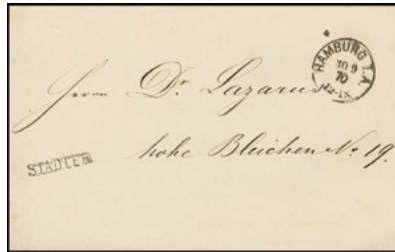 HAMBURG I.A.
30 9
70
Herrn Dr. Lazarus
hohe Bleichen No 19.